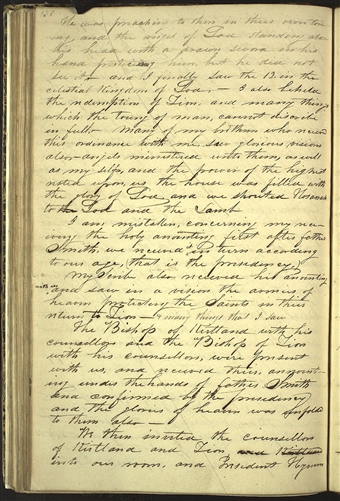 138
He was preaching to them in their own tong
ng, and the angel of God standing above
his head with a drawn sword in his
hand protecting him, but he did not
see it— and I finally saw the 12 in the
celestial Kingdom of God— I also beheld
the redemption of Zion, and many things
which the toung of man, cannot discribe
in full— Many of my brethren who received
this ordinance with me, saw glorious visions
also— angels ministered unto them, as well
as my self, and the power of the highest
rested upon, us the house was filled with
the glory of God, and we shouted Hosanna
to the God and the Lamb
I am mistaken, concerning my re-
ceiving the holy anointing first after father
Smith, we received in turn according
to our age, (that is the presidency,)
My Scribe also recieved his anointing
with us and saw in a vision the armies of
heaven protecting the Saints in their
return to Zion— & many things that I saw
The Bishop of Kirtland with his
counsellors and the Bishop of Zion
with his counsellors, were present
with us, and received their, annoint-
ing under the hands of father Smith
and confirmed by the presidency
and the glories of heaven was unfolded
to them also—
We then invited the counsellors
of Kirtland and Zion and Kirtland
into our room, and President Hyrum